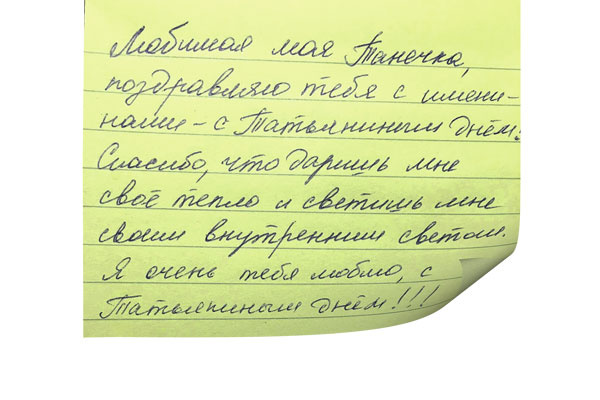 Любимая моя Танечка,
поздравляю тебя с имени-
нами – с Татьяниным днём!
Спасибо, что даришь мне
своё тепло и светишь мне
своим внутренним светом.
Я очень тебя люблю, с
Татьяниным днём!!!